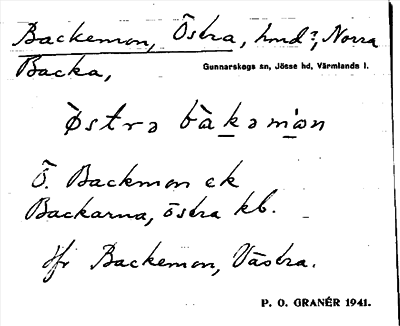 Backemon, Östra, hmd?, Norra
Backa,
Gunnarskogs sn, Jösse hd, Värmlands l.
Östrə bàkəmòn
Ö. Backmon ek
Backarna, östra kb.
Jfr Backemon, Västra.
P. O. GRANÉR 1941.